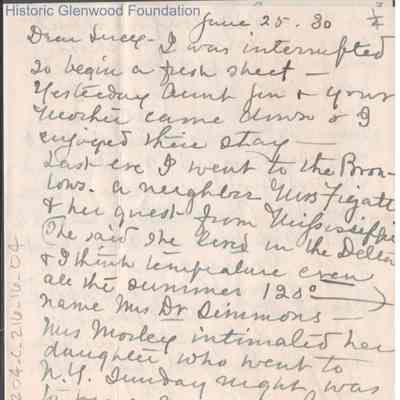 Historic Glenwood Foundation
June 25. 30
Dear Lucy - I was interrupted
so begin a fresh sheet -
Yesterday Aunt Jen & your
Mother came down & I
enjoyed their stay -
Last eve I went to the Bron-
lows. a neighbor Mrs
& her guest from Mississippi
(She said she lived in the Delta
& I think temperature even
all the summer 120°
name Mrs Dr Simmons -
Mrs Mosley intimated her
daughter who went to
N.Y. Sunday night was
204-C-216-16-04